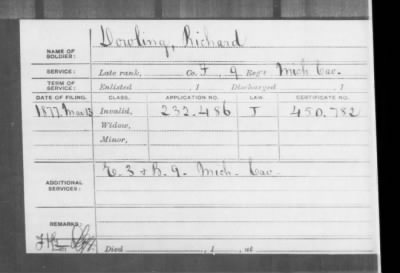 Dowling, Richard
NAME OF SOLDIER:
SERVICE: Late rank, Co. F, 9 Reg't Mich Cav.
TERM OF SERVICE: Enlisted , 1 Discharged , 1
DATE OF FILING. CLASS. APPLICATION NO. LAW. CERTIFICATE NO.
1877 Mar 13 Invalid, 232.486 450.782
Widow,
Minor,
ADDITIONAL SERVICES: E. 3 & B. 9. Mich. Cav.
REMARKS:
Died , 1 , at